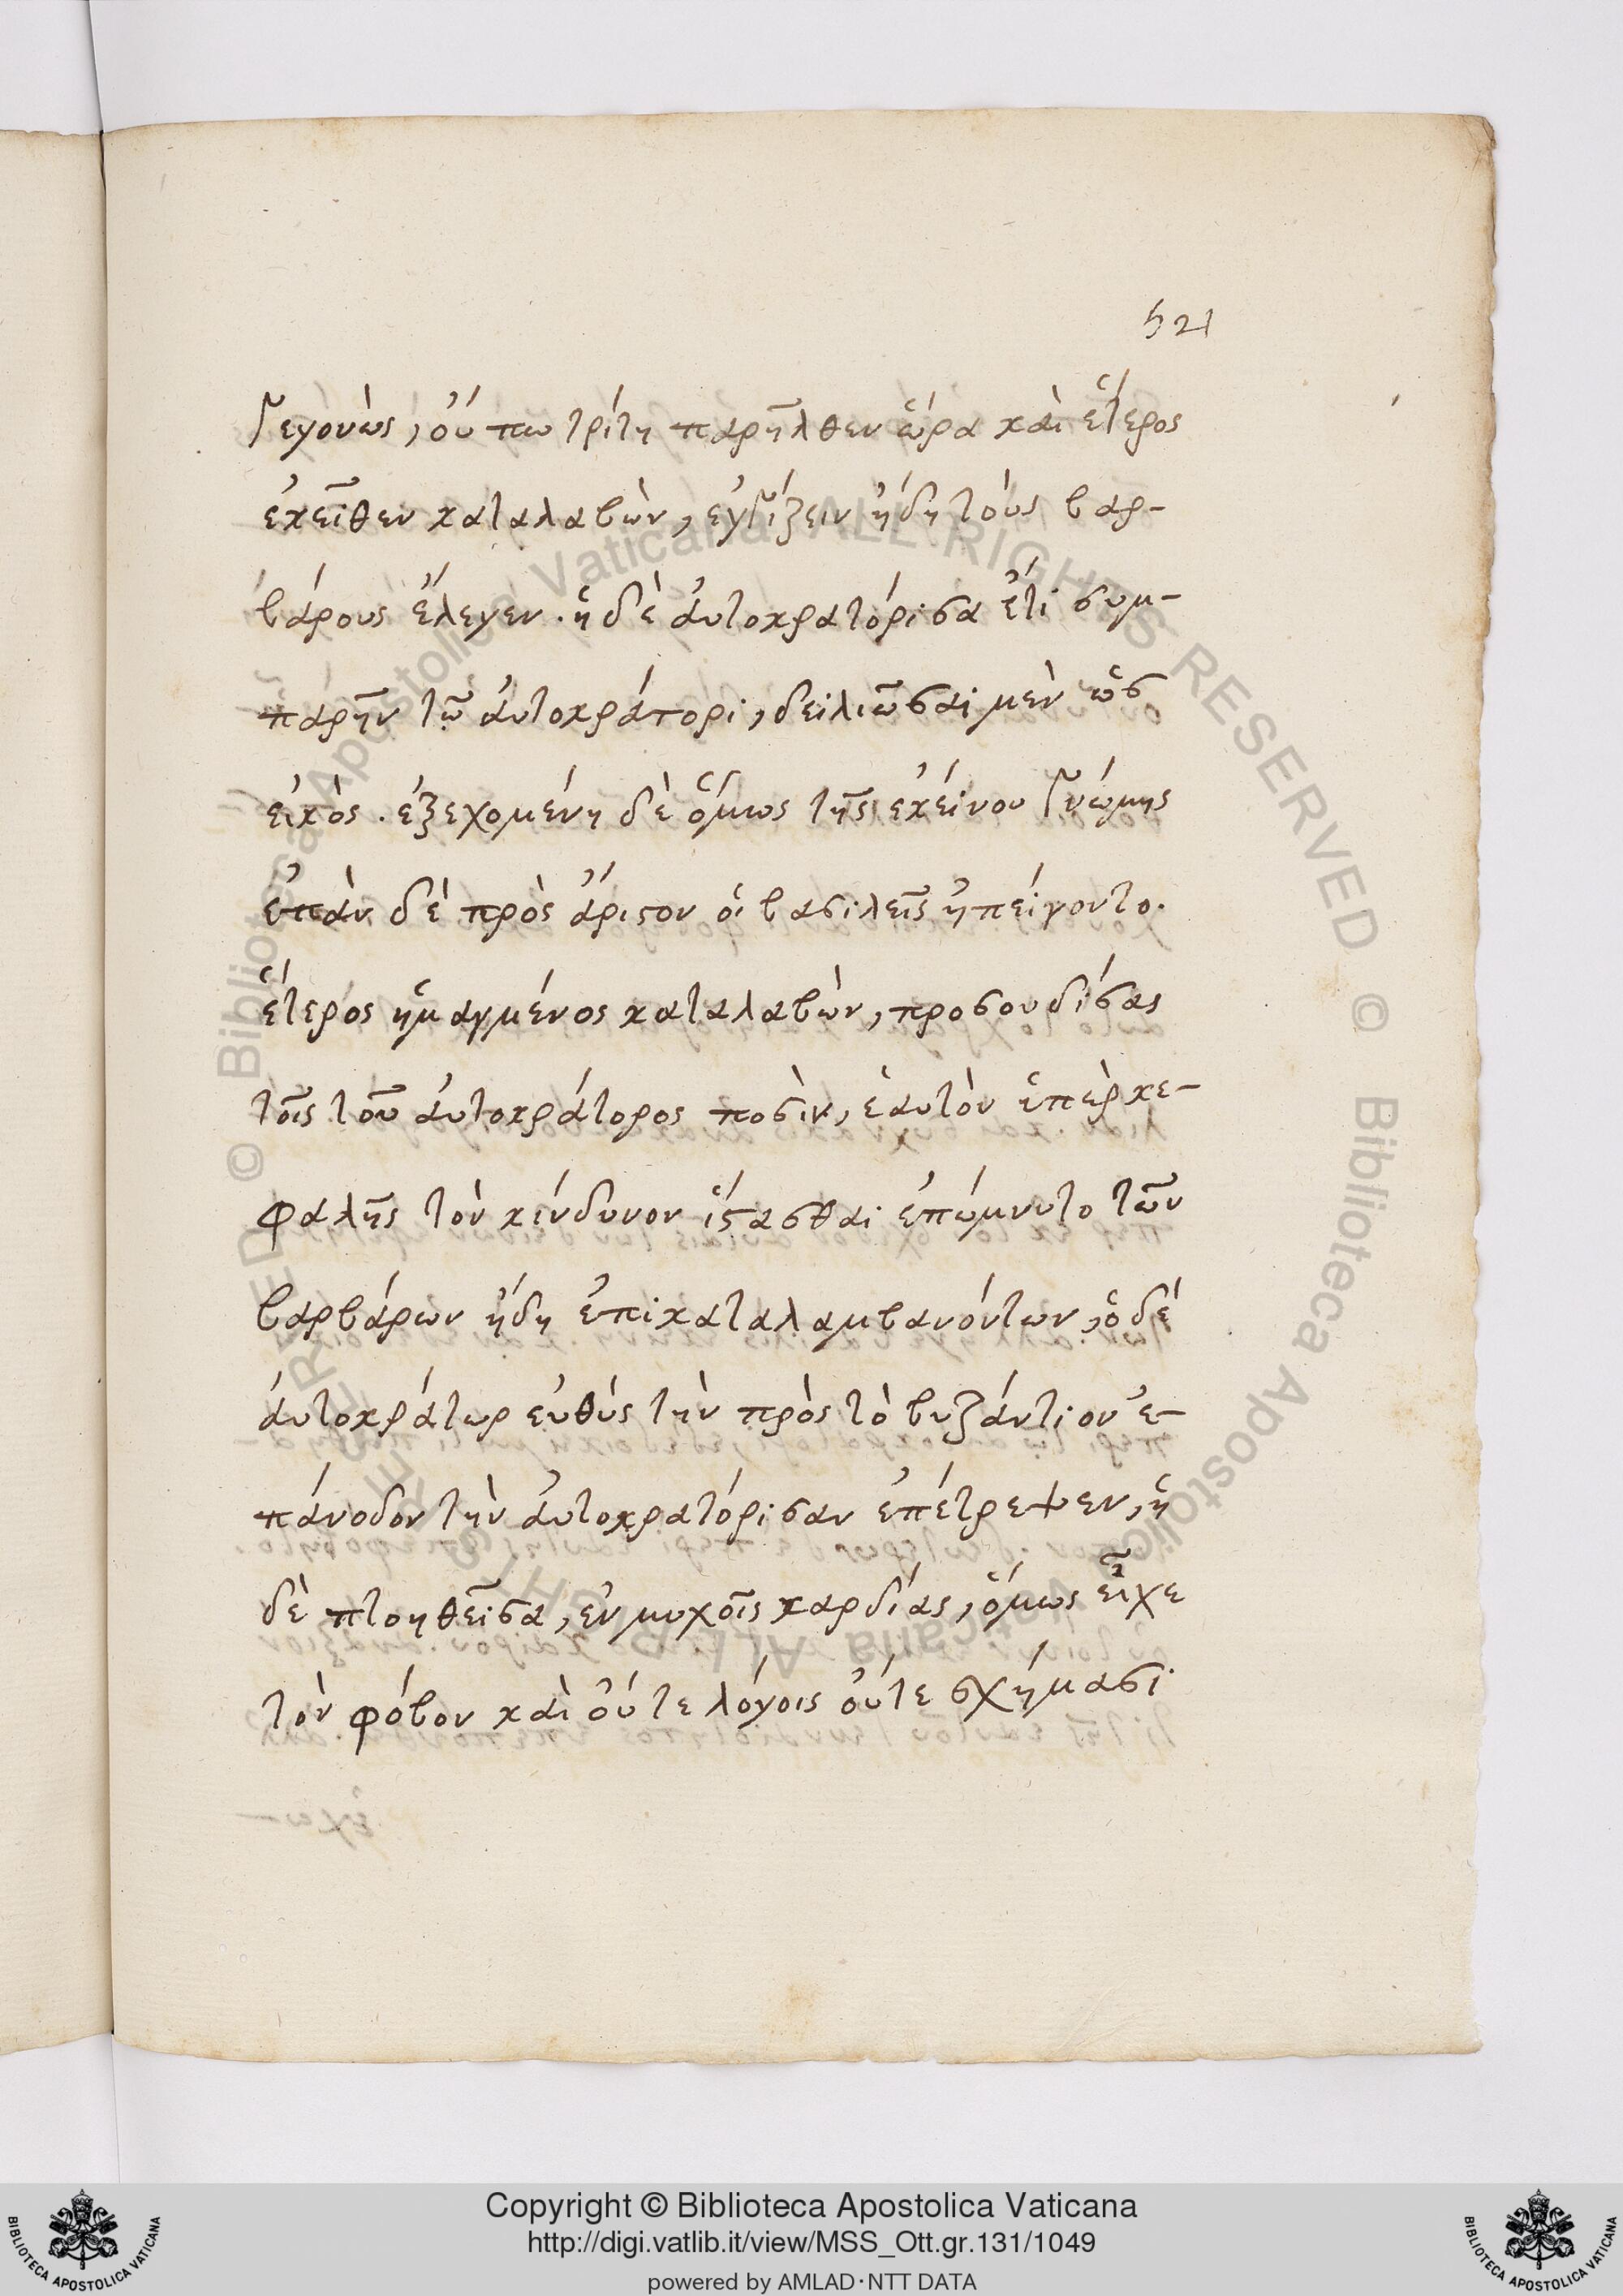 521
γεγονὼς, οὔπω τρίτη παρῆλθεν ὥρα καὶ ἕτερος
ἐκεῖθεν καταλαβὼν, ἐγγίζειν ἤδη τοὺς βαρ-
βάρους ἔλεγεν. ἡ δὲ ἀυτοκρατόρισα ἔτι συμ-
παρῆν τῶ ἀυτοκράτορι, δειλιῶσαι μὲν ὡς
εἰκὸς. ἐξεχομένη δὲ ὅμως τῆς ἐκείνου γνώμης
ἐπὰν δὲ πρὸς ἄριστον ὁι βασιλεῖς ἠπείγοντο.
ἕτερος ἡμαγμένος καταλαβὼν, προσουδίσας
τοῖς τοῦ ἀυτοκράτορος ποσὶν, ἑαυτὸν ὑπὲρ κε-
φαλῆς τὸν κίνδυνον ἵστασθαι ἐπώμνυτο τῶν
βαρβάρων ἤδη ἐπικαταλαμβανόντων, ὁ δὲ
ἀυτοκράτωρ εὐθὺς τὴν πρὸς τὸ βυζάντιον ἐ-
πάνοδον τὴν ἀυτοκρατόρισαν ἐπέτρεψεν, ἡ
δὲ πτοηθεῖσα, ἐν μυχοῖς καρδίας, ὅμως εἶχε
τὸν φόβον καὶ ὄυτε λόγοις ὄυτε σχήμασι
© Biblioteca Apostolica Vaticana ALL RIGHTS RESERVED © Biblioteca Apostolica Vaticana ALL RIGHTS RESERVED
BIBLIOTECA APOSTOLICA VATICANA
Copyright © Biblioteca Apostolica Vaticana
http://digi.vatlib.it/view/MSS_Ott.gr.131/1049
powered by AMLAD·NTT DATA
BIBLIOTECA APOSTOLICA VATICANA